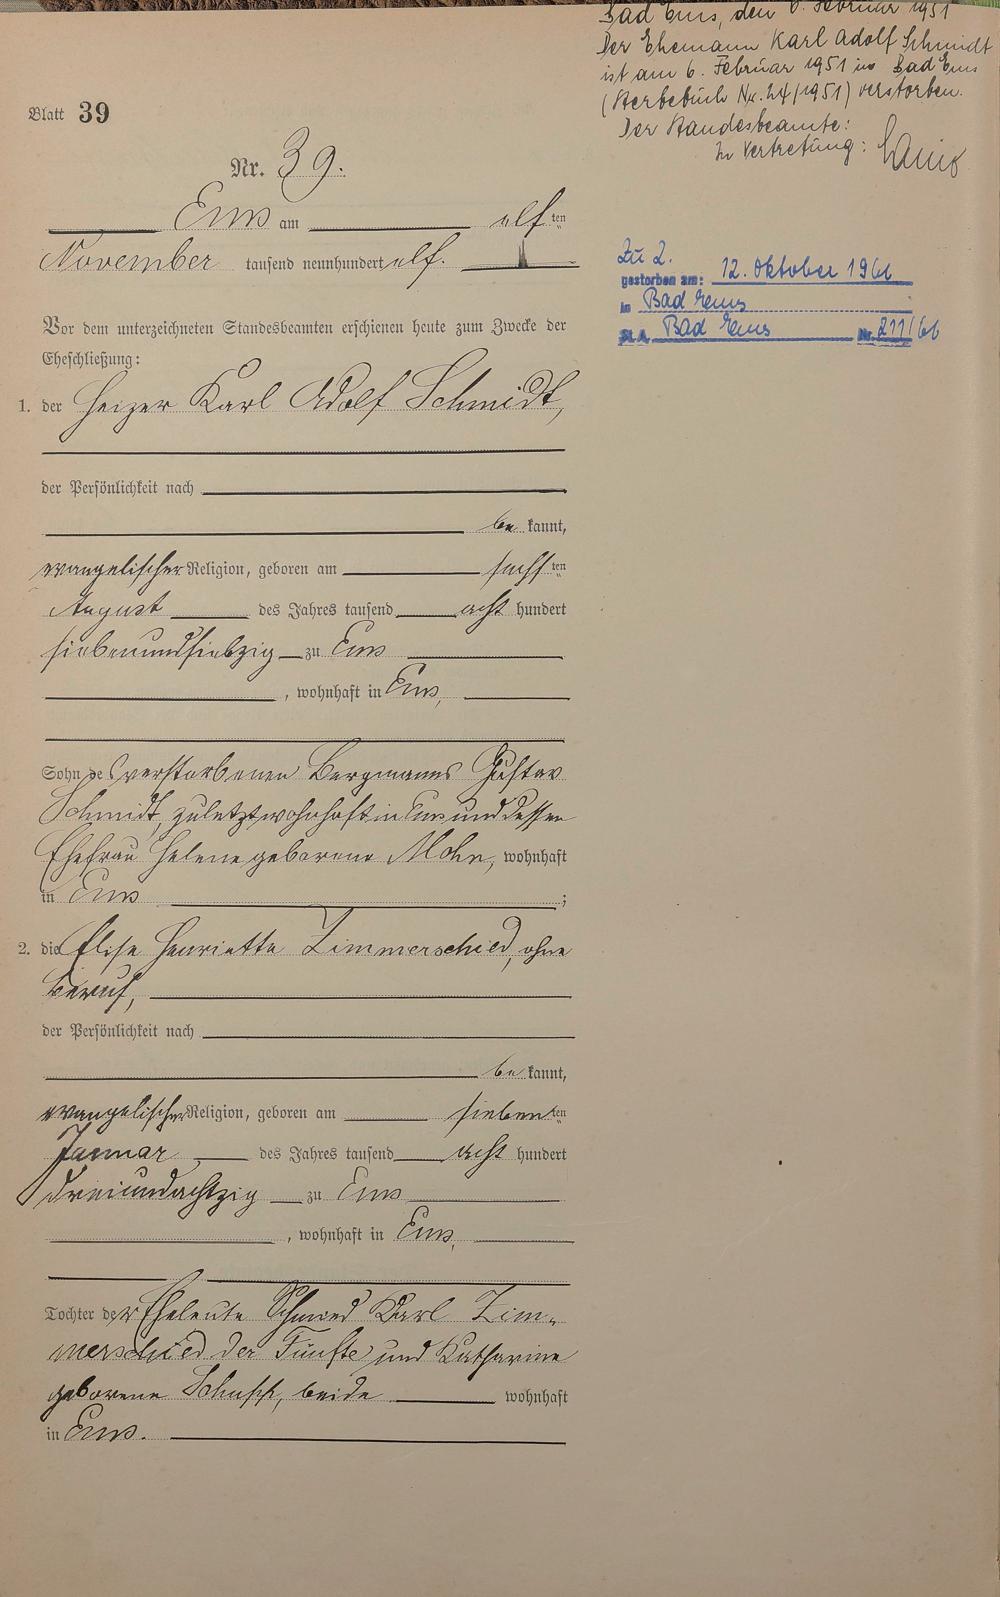 Bad Ems, den 6. Februar 1951
Der Ehemann Karl Adolf Schmidt
ist am 6. Februar 1951 in Bad Ems
(Sterbebuch Nr. 24/1951) verstorben.
Der Standesbeamte:
In Vertretung:
Blatt 39
Nr. 39.
Ems am elf ten
November tausend neunhundert elf.
Zu 2.
gestorben am: 12. Oktober 1961
in Bad Ems
St.A. Bad Ems Nr. 211/61
Vor dem unterzeichneten Standesbeamten erschienen heute zum Zwecke der
Eheschließung:
1. der Heizer Karl Adolf Schmidt,
der Persönlichkeit nach
be kannt,
evangelischer Religion, geboren am sechs ten
August des Jahres tausend acht hundert
siebenundsiebzig zu Ems
, wohnhaft in Ems,
Sohn des verstorbenen Bergmanns Gustav
Schmidt, zuletzt wohnhaft in Ems und dessen
Ehefrau Helene geborene Mohn, wohnhaft
in Ems ;
2. die Elise Henriette Zimmerschied, ohne
Beruf,
der Persönlichkeit nach
be kannt,
evangelischer Religion, geboren am sieben ten
Januar des Jahres tausend acht hundert
dreiundachtzig zu Ems
, wohnhaft in Ems,
Tochter der Eheleute Schmied Karl Zim-
merschied der Fünfte und Katharine
geborene Schupp, beide wohnhaft
in Ems.